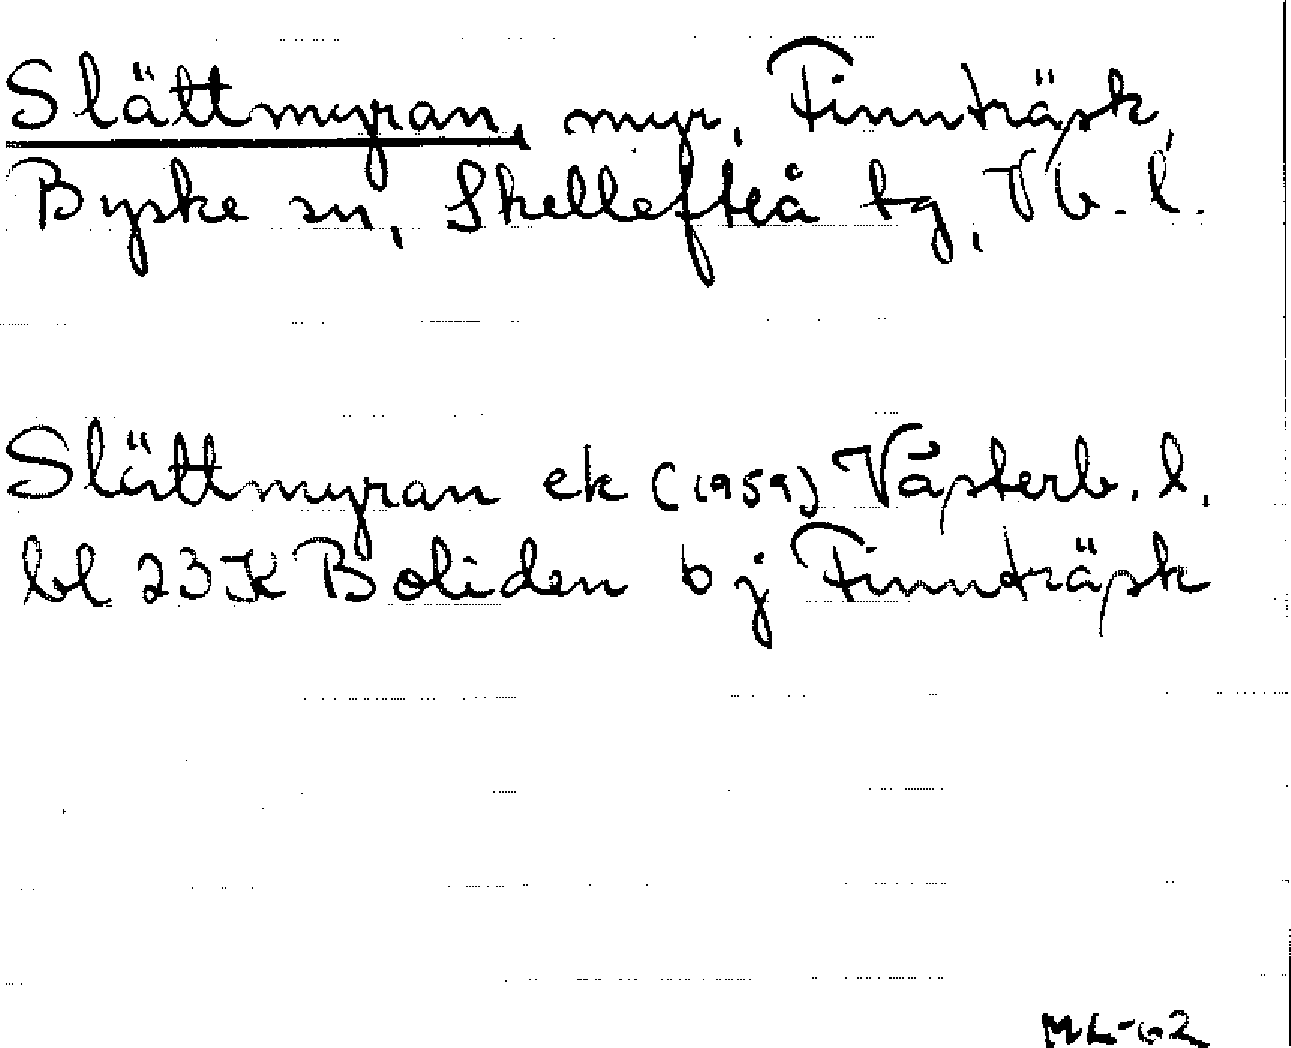 Slättmyran, myr, Finnträsk,
Byske sn, Skellefteå tg, Vb. l.
Slättmyran ek (1959) Västerb. l.
bl 23K Boliden b j Finnträsk
ML-62